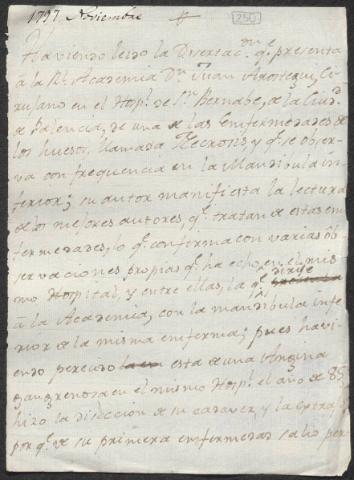 1797. Noviembre
250
Haviendo leido la Disertac.ne q.e presenta
à la Rl. Academia Dn. Juan Arostegui, Ci-
rujano en el Hospl. de Sn. Bernabe, de la Ciud.
de Palencia, de una de las Enfermedades de
los huesos, llamada Necrosis, y q.e se obser-
va con frequencia en la Mandibula in-
ferior; su autor manifiesta la lectura
de los mejores autores, q.e tratan de estas en-
fermedades, lo q.e confirma con varias ôb
servaciones propias q.e ha echo, en el mis-
mo Hospital, y entre ellas, la q.e dirije
à la Academia, con la mandibula infe
rior de la misma enferma; pues havi-
endo perecido esta de una Angina
gangrenosa en el mismo Hospl. el año de 89
hizo la diseccion de su cadaver, y la extrajo
porq.e de su primera enfermedad salio per